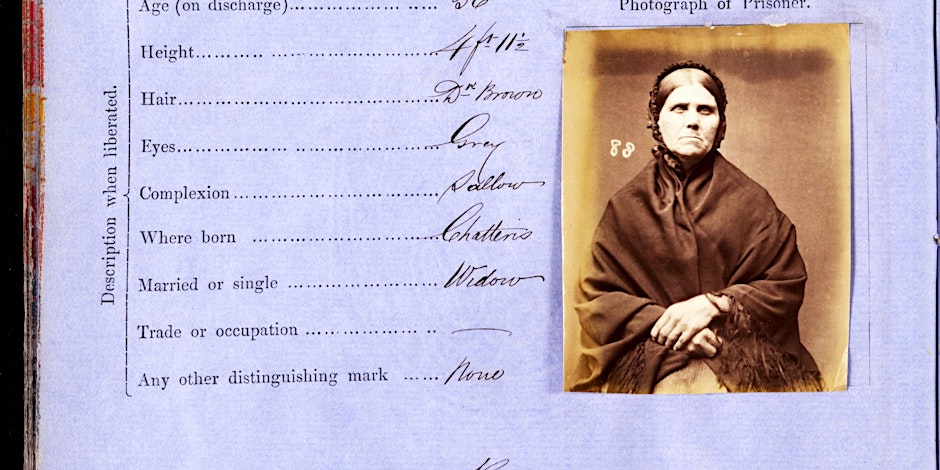 Age (on discharge)
Photograph of Prisoner.
Height 4 ft 11½
Hair Dk Brown
Eyes Grey
Complexion Sallow
Where born Chatteris
Married or single Widow
Trade or occupation —
Any other distinguishing mark None
Description when liberated.
88